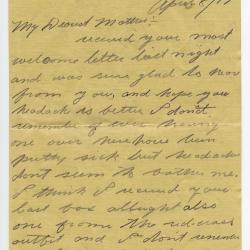 My Dearest Mother:-
received your most
welcome letter last night
and was sure glad to hear
from you, and hope your
headach is better I don't
remember of ever having
one over here have been
pretty sick but headachs
dont seem to bother me.
I think I received your
last box allright also
one from the redcross
outfit and I don't remem